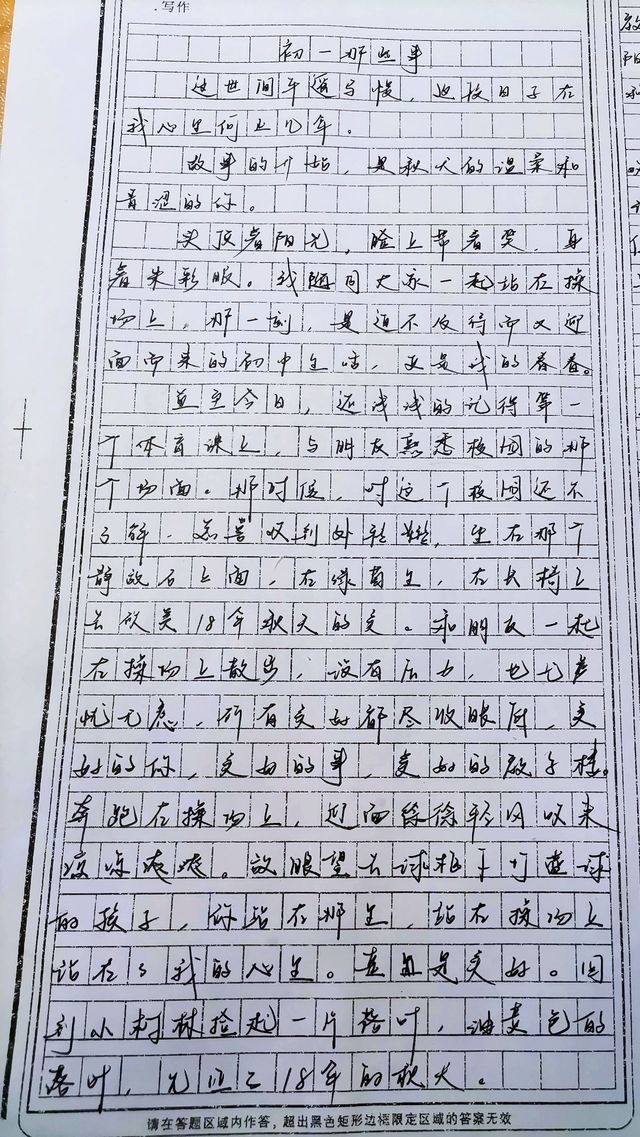 写作
初一那些事
这世间年遥与慢，这段日子在
我心里何止几年。
故事的开始，是秋天的温柔和
青涩的你。
头顶着阳光，脸上带着笑，身
着朱彩服。我随同大家一起站在操
场上，那一刻，是迫不及待而又迎
面而来的初中生活，更是我的青春。
直至今日，还浅浅的记得第一
个体育课上，与朋友熟悉校园的那
个场面。那时侯，对这个校园还不
了解，总喜欢到处转转，坐在那个
静
石上面，在绿茵里，在长椅上
去欣美18年秋天的美。和朋友一起
在操场上散步，没有压力，也无半
忧无虑，所有美好都尽收眼底，美
好的你，美好的事，美好的教学楼。
奔跑在操场上，迎面徐徐轻风吹来
凉凉爽爽。放眼望去球柏下打篮球
的孩子，你站在那里，站在操场上
站在了我的心里。真是美好。回
到小树林捡起一片落叶，油麦色的
落叶，见证了18年的秋天。
请在答题区域内作答，超出黑色矩形边框限定区域的答案无效